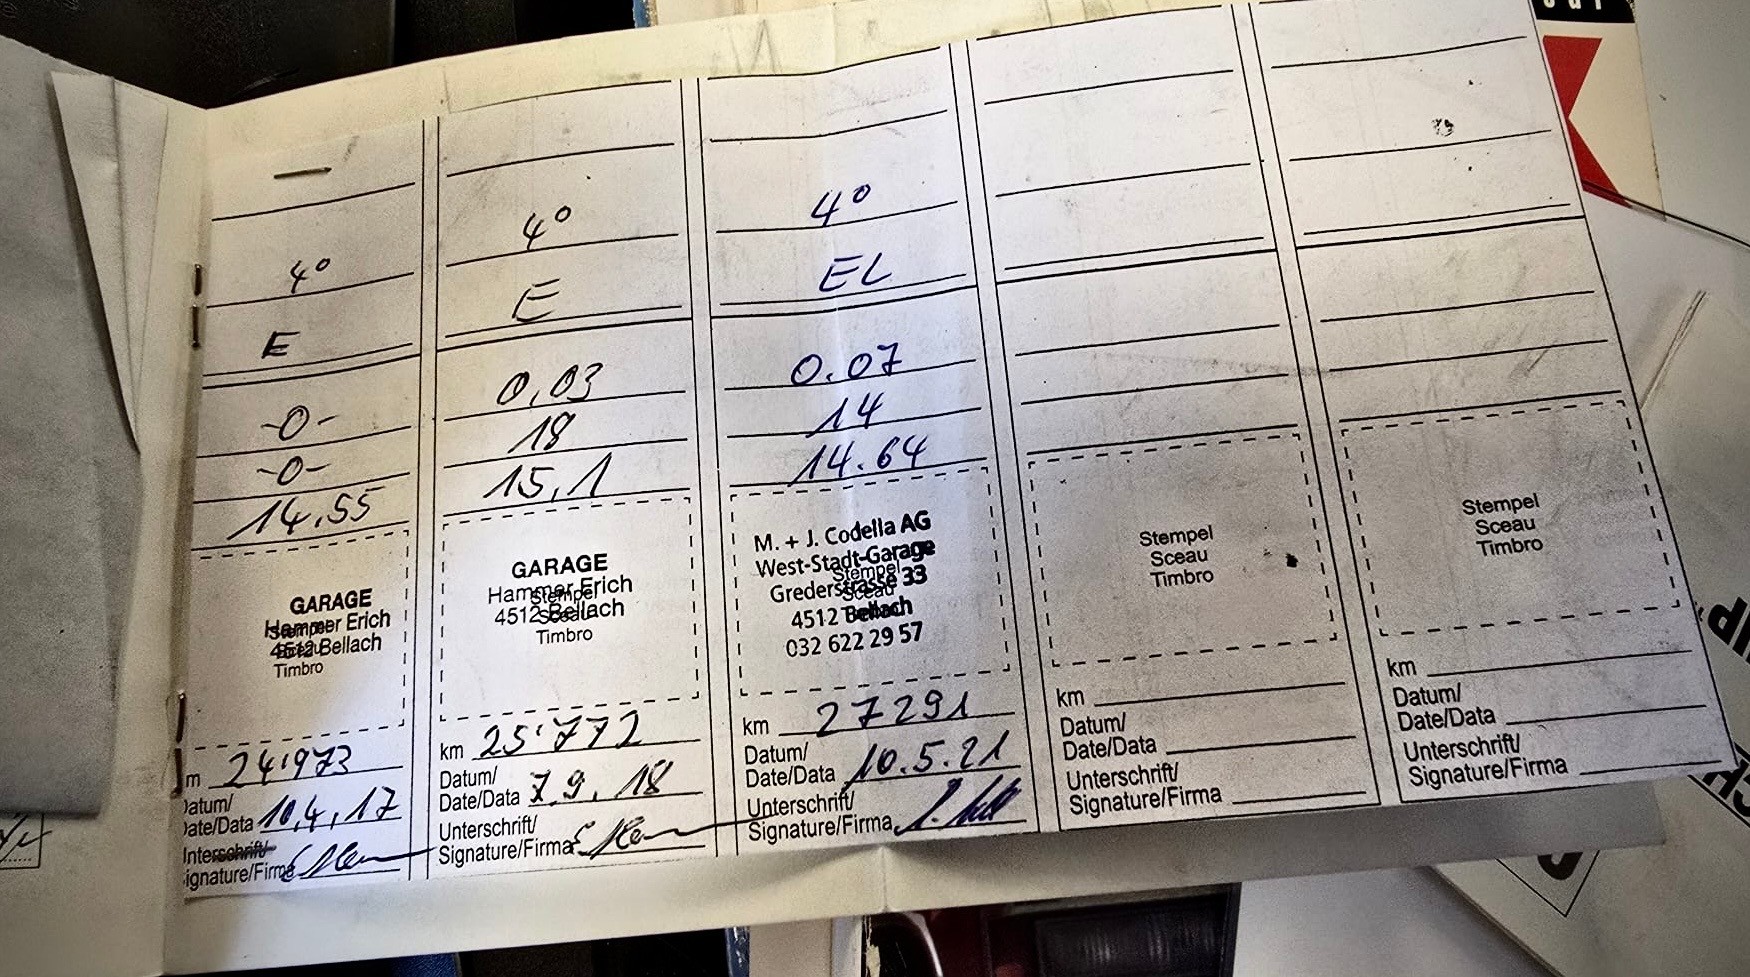 4°
E
-0-
-0-
14,55
GARAGE
Hammer Erich
4512 Bellach
Stempel
Sceau
Timbro
m 24'973
Datum/
Date/Data 10,4,17
Unterschrift/
ignature/Firma
4°
E
0,03
18
15,1
GARAGE
Hammer Erich
4512 Bellach
Stempel
Sceau
Timbro
km 25'772
Datum/
Date/Data 7.9.18
Unterschrift/
Signature/Firma
4°
EL
0.07
14
14.64
M. + J. Codella AG
West-Stadt-Garage
Grederstrasse 33
4512 Bellach
032 622 29 57
Stempel
Sceau
km 27291
Datum/
Date/Data 10.5.21
Unterschrift/
Signature/Firma
Stempel
Sceau
Timbro
km
Datum/
Date/Data
Unterschrift/
Signature/Firma
Stempel
Sceau
Timbro
km
Datum/
Date/Data
Unterschrift/
Signature/Firma